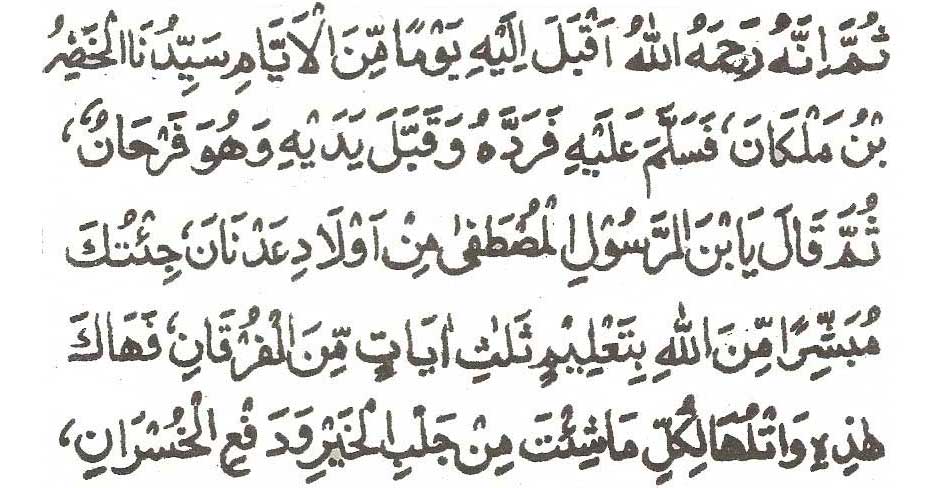 ثُمَّ اِنَّهُ رَحِمَهُ اللهُ اَقْبَلَ اِلَيْهِ يَوْمًا مِّنَ الْاَيَّامِ سَيِّدُنَا الْخَضِرُ
بْنُ مَلْكَانَ، فَسَلَّمَ عَلَيْهِ فَرَدَّهُ وَقَبَّلَ يَدَيْهِ وَهُوَ فَرْحَانٌ،
ثُمَّ قَالَ يَا بْنَ الرَّسُوْلِ الْمُصْطَفٰى مِنْ اَوْلَادِ عَدْنَانَ، جِئْتُكَ
مُبَشِّرًا مِّنَ اللهِ بِتَعْلِيْمِ ثَلٰثِ اٰيَاتٍ مِّنَ الْفُرْقَانِ، فَهَاكَ
هٰذِهِ وَاتْلُهَا لِكُلِّ مَا شِئْتَ مِنْ جَلْبِ الْخَيْرِ وَدَفْعِ الْخُسْرَانِ،